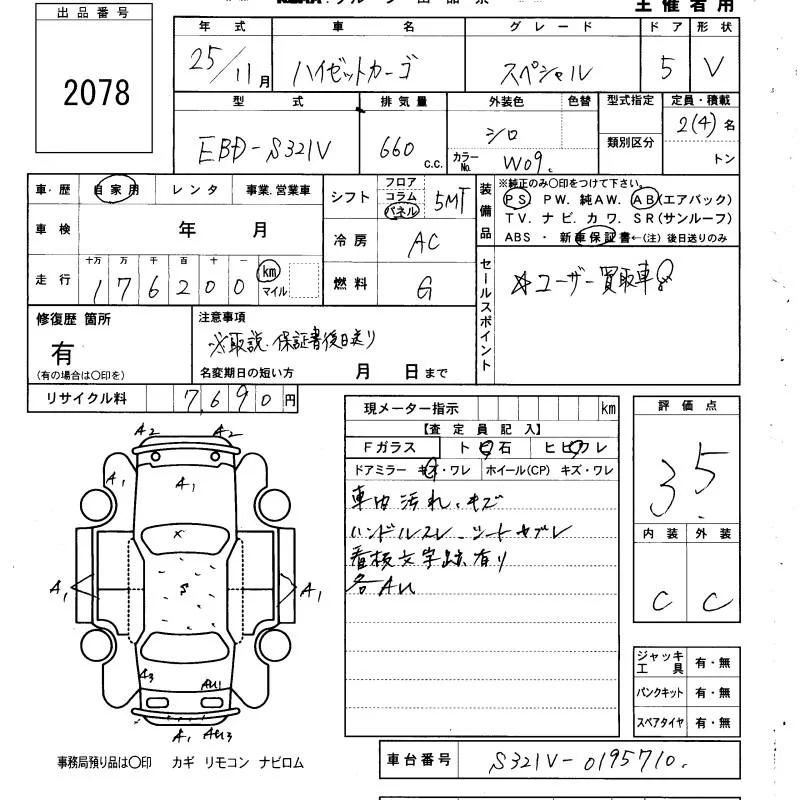 出品番号
2078
主催者用
年式 車名 グレード ドア 形状
25/11月 ハイゼットカーゴ スペシャル 5 V
型式 排気量 外装色 色替 型式指定 定員・積載
EBD-S321V 660c.c. シロ 類別区分 2(4)名
カラーNo. W09. トン
車・歴 自家用 レンタ 事業.営業車
車検 年 月
走行 十万 万 千 百 十 一
176200 km マイル
シフト フロア コラム パネル 5MT
冷房 AC
燃料 G
装備品 ※純正のみ〇印をつけて下さい。
PS PW. 純AW. AB(エアバック)
TV. ナビ. カワ. SR(サンルーフ)
ABS ・ 新車保証書←(注) 後日送りのみ
セールスポイント
☆ユーザー買取車
修復歴 箇所
有
(有の場合は〇印を)
注意事項
※取説.保証書後日送り
名変期日の短い方 月 日まで
リサイクル料 7,690円
現メーター指示 km
【査定員記入】
Fガラス トビ石 ヒビワレ
ドアミラー キズ・ワレ ホイール(CP) キズ・ワレ
車内汚れ、キズ
ハンドルスレ、シートヤブレ
看板文字跡有り
各AU
評価点
3.5
内装 外装
C C
ジャッキ工具 有・無
パンクキット 有・無
スペアタイヤ 有・無
A2 A2
A1
A1
×
A1 S A1
A3 AU1
A1 AU3
事務局預り品は〇印 カギ リモコン ナビロム
車台番号 S321V-0195710.